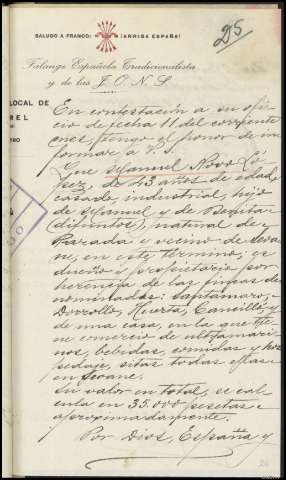 SALUDO A FRANCO: ¡ARRIBA ESPAÑA!
25
Falange Española Tradicionalista
y de las J. O. N. S.
LOCAL DE
REL
En contestación a su ofi-
cio de fecha 11 del corriente
mes, tengo el honor de in-
formar a V. S.
Que Manuel Novo Ló-
pez, de 43 años de edad,
casado, industrial, hijo
de Manuel y de Benita
(difuntos), natural de
Parada y vecino de
en este término, es
dueño y propietario por
herencia de las fincas de-
nominadas:
Huerta,
de una casa, en la que tie-
ne comercio de ultramari-
nos, bebidas, comidas y hos-
pedaje, sitas todas ellas
en
Su valor en total, se cal-
cula en 35.000 pesetas
aproximadamente.
Por Dios, España y